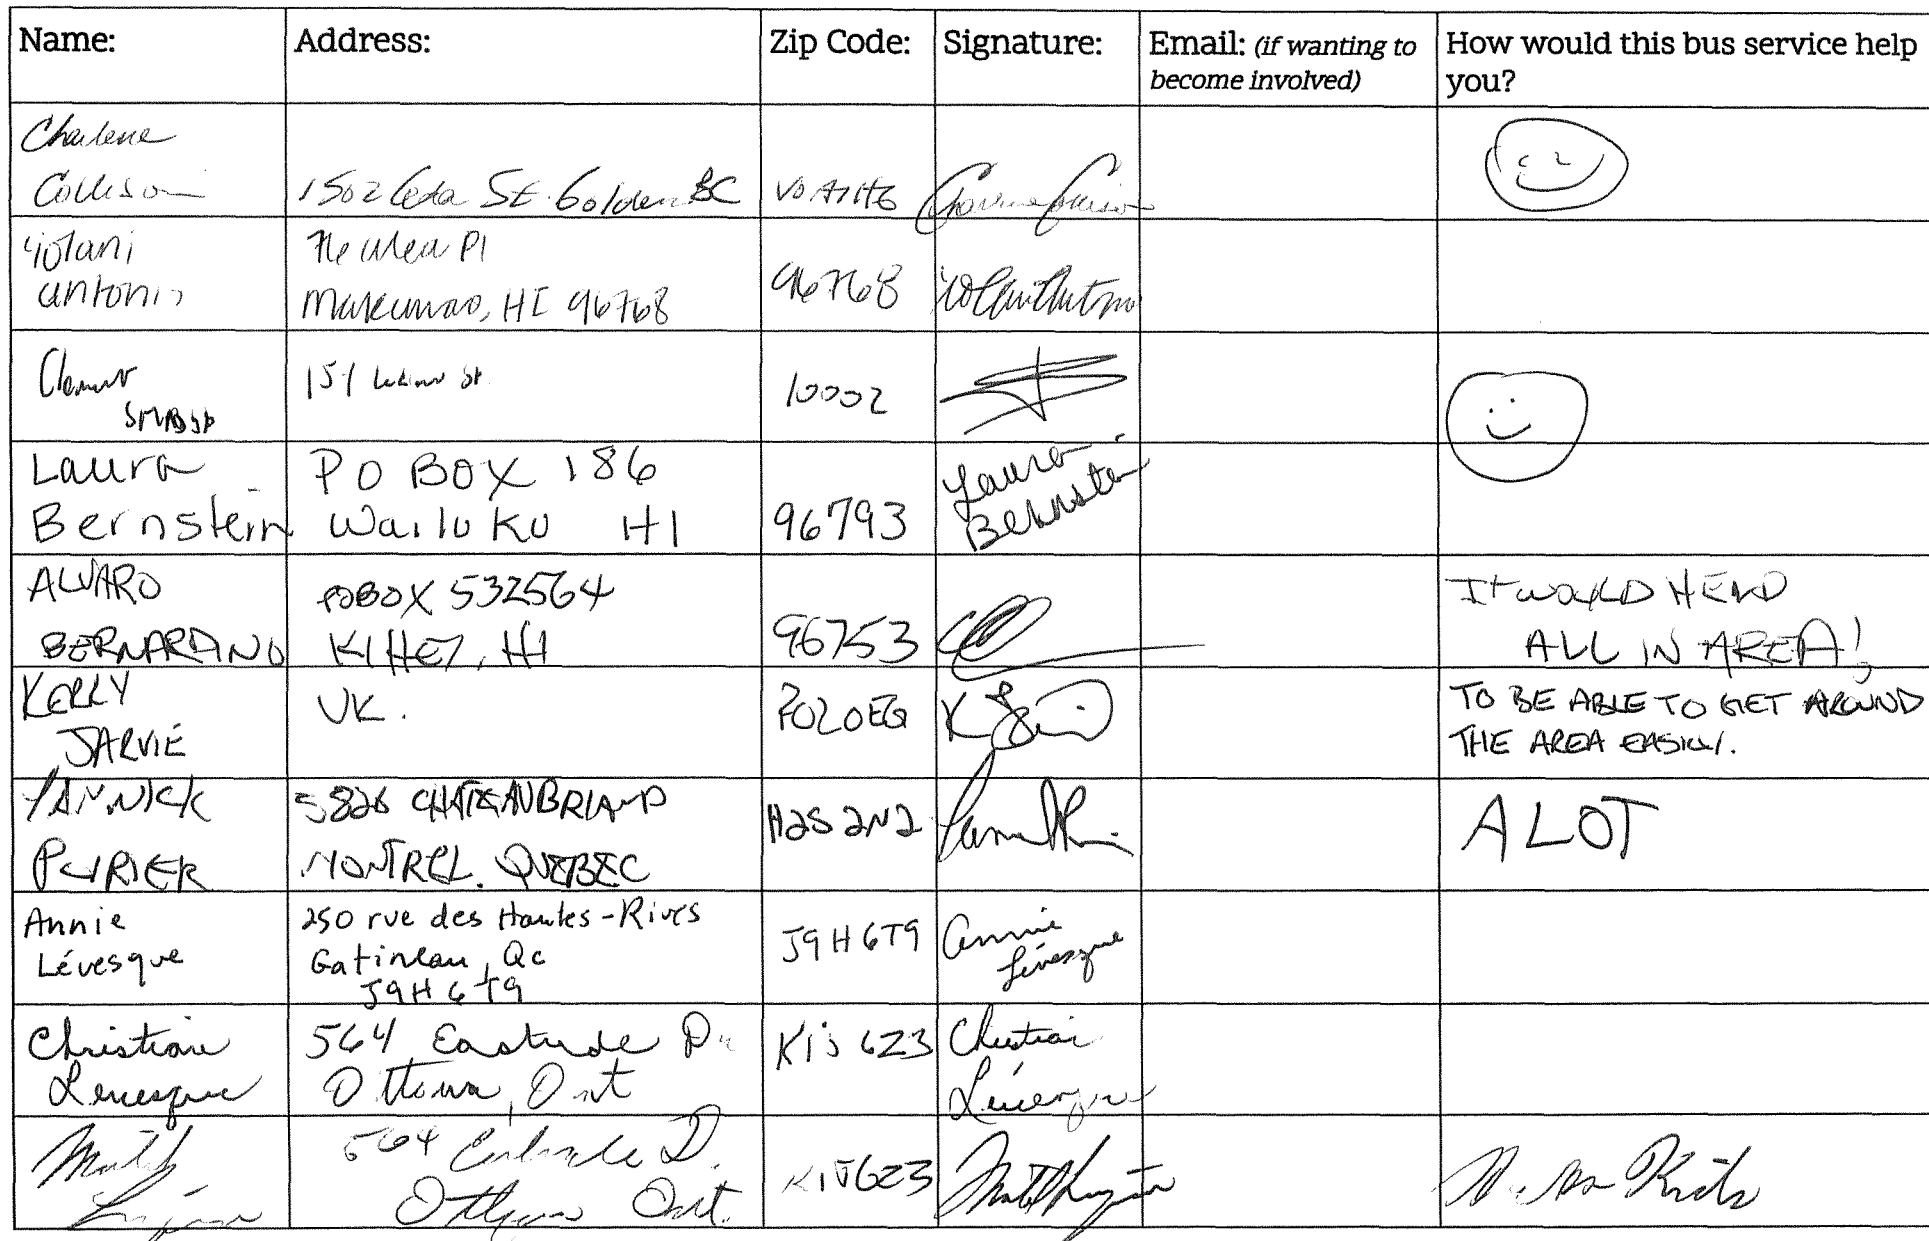 Name: Address: Zip Code: Signature: Email: (if wanting to become involved) How would this bus service help you?
Charlene
Collison 1502 St. Golden BC V0A1H6
Iolani
Antonio Pl
Makawao, HI 96768 96768
151 st 10002
Laura
Bernstein PO BOX 186
Wailuku HI 96793 Laura
Bernstein
ALVARO
BERNARDINO POBOX 532564
KIHEI, HI 96753 It WOULD
ALL IN AREA!
KELLY
JARVIE UK. PO20EG K TO BE ABLE TO GET AROUND
THE AREA EASILY.
YANNICK
5826 CHATEAUBRIAND
MONTREL. QUEBEC H2S 2N2 A LOT
Annie
Lévesque 250 rue des Hautes-Rives
Gatineau, Qc
J9H 6T9 J9H 6T9 Annie
Lévesque
Christiane
Levesque 564 Dr
Ottawa, Ont K1J 6Z3 Christiane
Lévesque
564 D.
Ottawa Ont. K1J6Z3